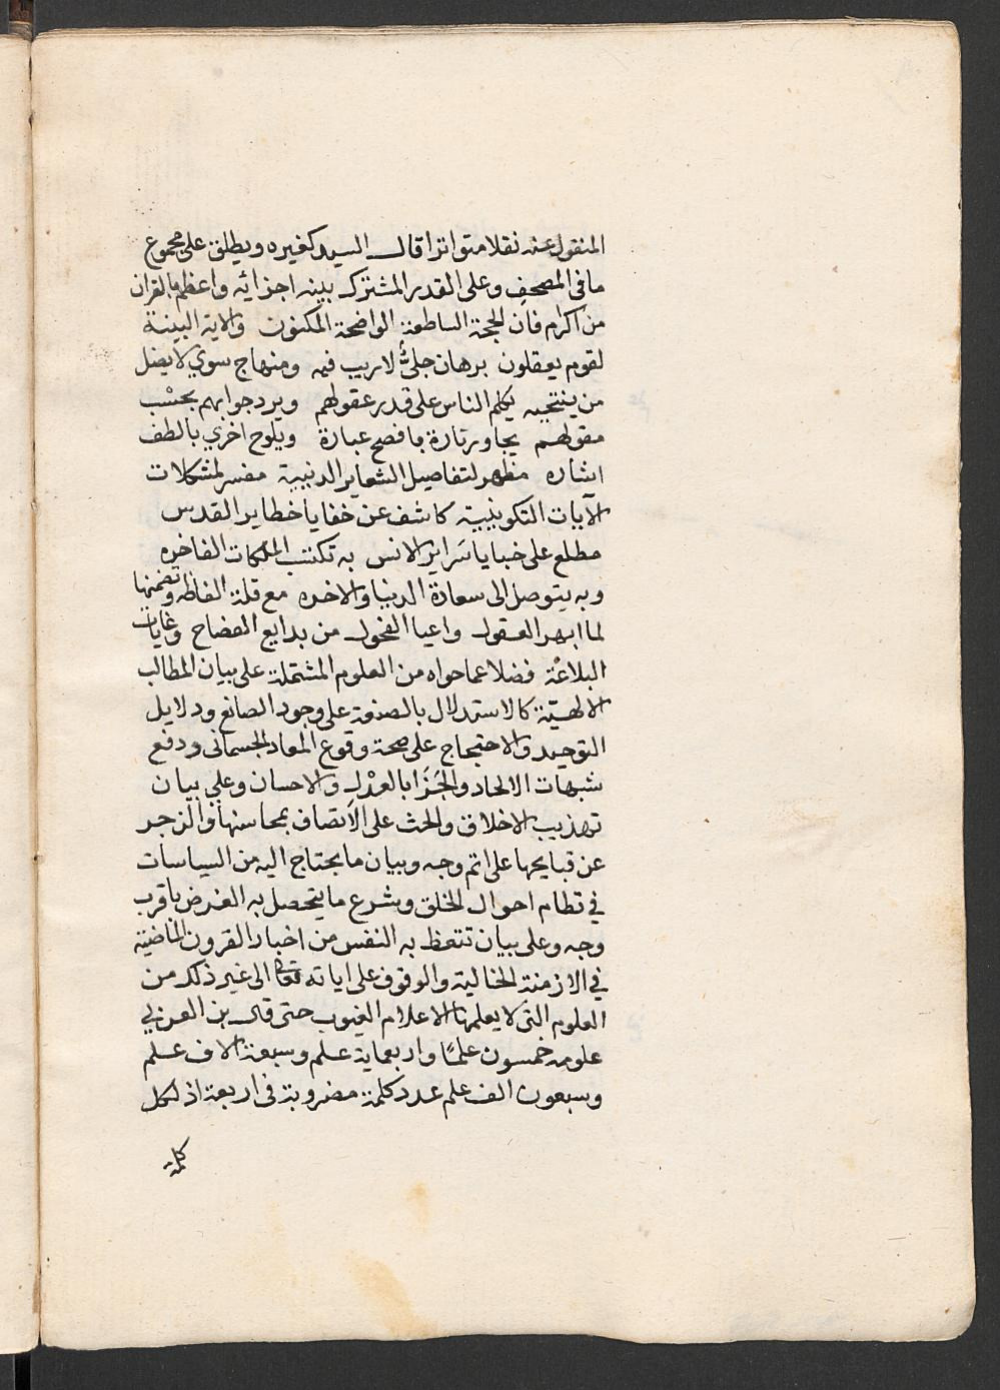 المنقول عنه نقلا متواترا قال السيد كغيره ويطلق على مجموع
ما في المصحف وعلى القدر المشترك بينه اجزائه واعظم بالقران
من اكرام فان الحجة الساطعة الواضحة المكنون والاية البينة
لقوم يعقلون برهان جلي لاريب فيه ومنهاج سوي لايضل
من ينتحيه يكلم الناس على قدر عقولهم ويرد جوابهم بحسب
مقولهم يحاور تارة بافصح عبارة ويلوح اخري بالطف
اشاره مظهر لتفاصيل الشعاير الدينية مفسر لمشكلات
الآيات التكوينية كاشف عن خفايا خطاير القدس
مطلع على خبايا سراير الانس به تكتسب الملكات الفاخره
وبه يتوصل الى سعادة الدنيا والاخره مع قلة الفاظه وتضمنها
لما ابهر العقول واعيا الفحول من بدايع الفصاح وغايات
البلاغة فضلا عما حواه من العلوم المشتملة على بيان المطالب
الالهية كالاستدلال بالصنعة على وجود الصانع ودلايل
التوحيد والاحتجاج على صحة وقوع المعاد الجسماني ودفع
شبهات الالحاد والجزا بالعدل والاحسان وعلي بيان
تهذيب الاخلاق والحث على الاتصاف بمحاسنها والزجر
عن قبايحها على اتم وجه وبيان ما يحتاج اليه من السياسات
في نظام احوال الخلق وشرع ما يتحصل به الغرض باقرب
وجه وعلى بيان تتعظ به النفس من اخبار القرون الماضية
في الازمنة الخالية والوقوف على اياته تعالى الى غير ذلك من
العلوم التي لا يعلمها الا علام الغيوب حتى قال بن العربي
علومه خمسون علما واربعماية علم وسبعة الاف علم
وسبعون الف علم عدد كلمة مضروبة في اربعة اذ لكل
كلمة